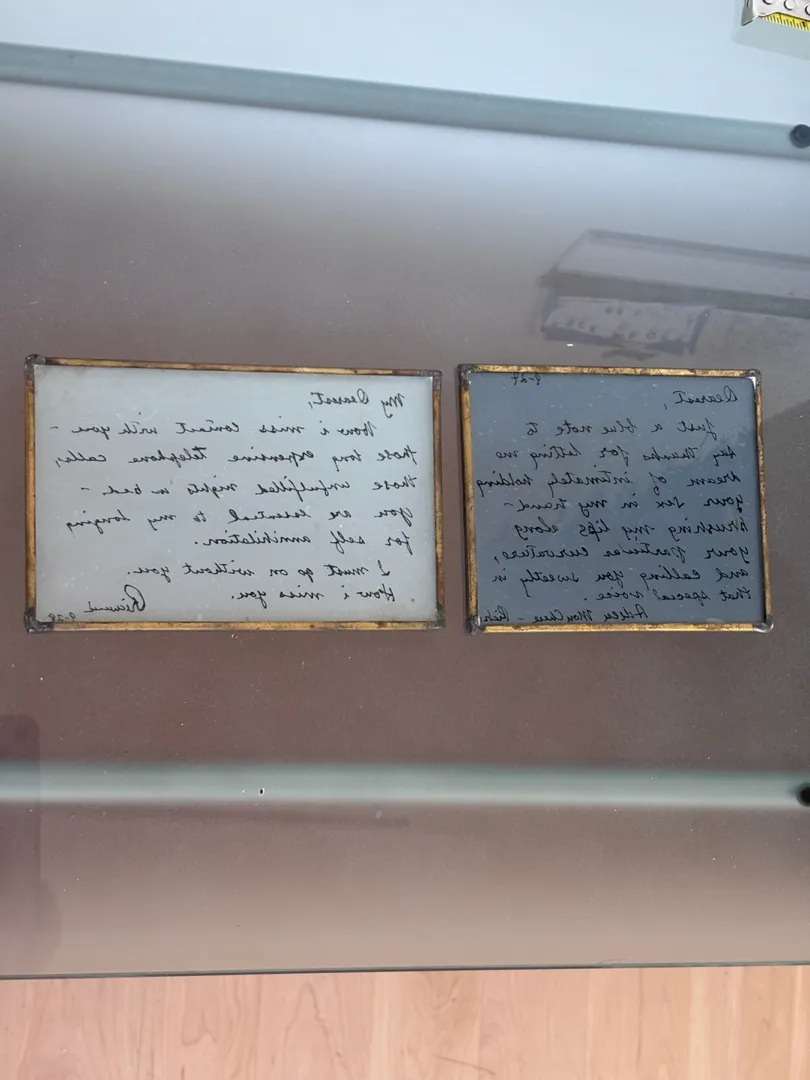 My Dearest,
How i miss contact with you -
those long expensive telephone calls,
those unfulfilled nights in bed -
you are essential to my longing
for self annihilation.
I must go on without you.
How i miss you.
9-29
Dearest,
Just a blue note to
say thanks for letting me
dream of intimately holding
your sex in my hand -
brushing my lips along
your particular curvature,
and calling you sweetly in
that special voice.